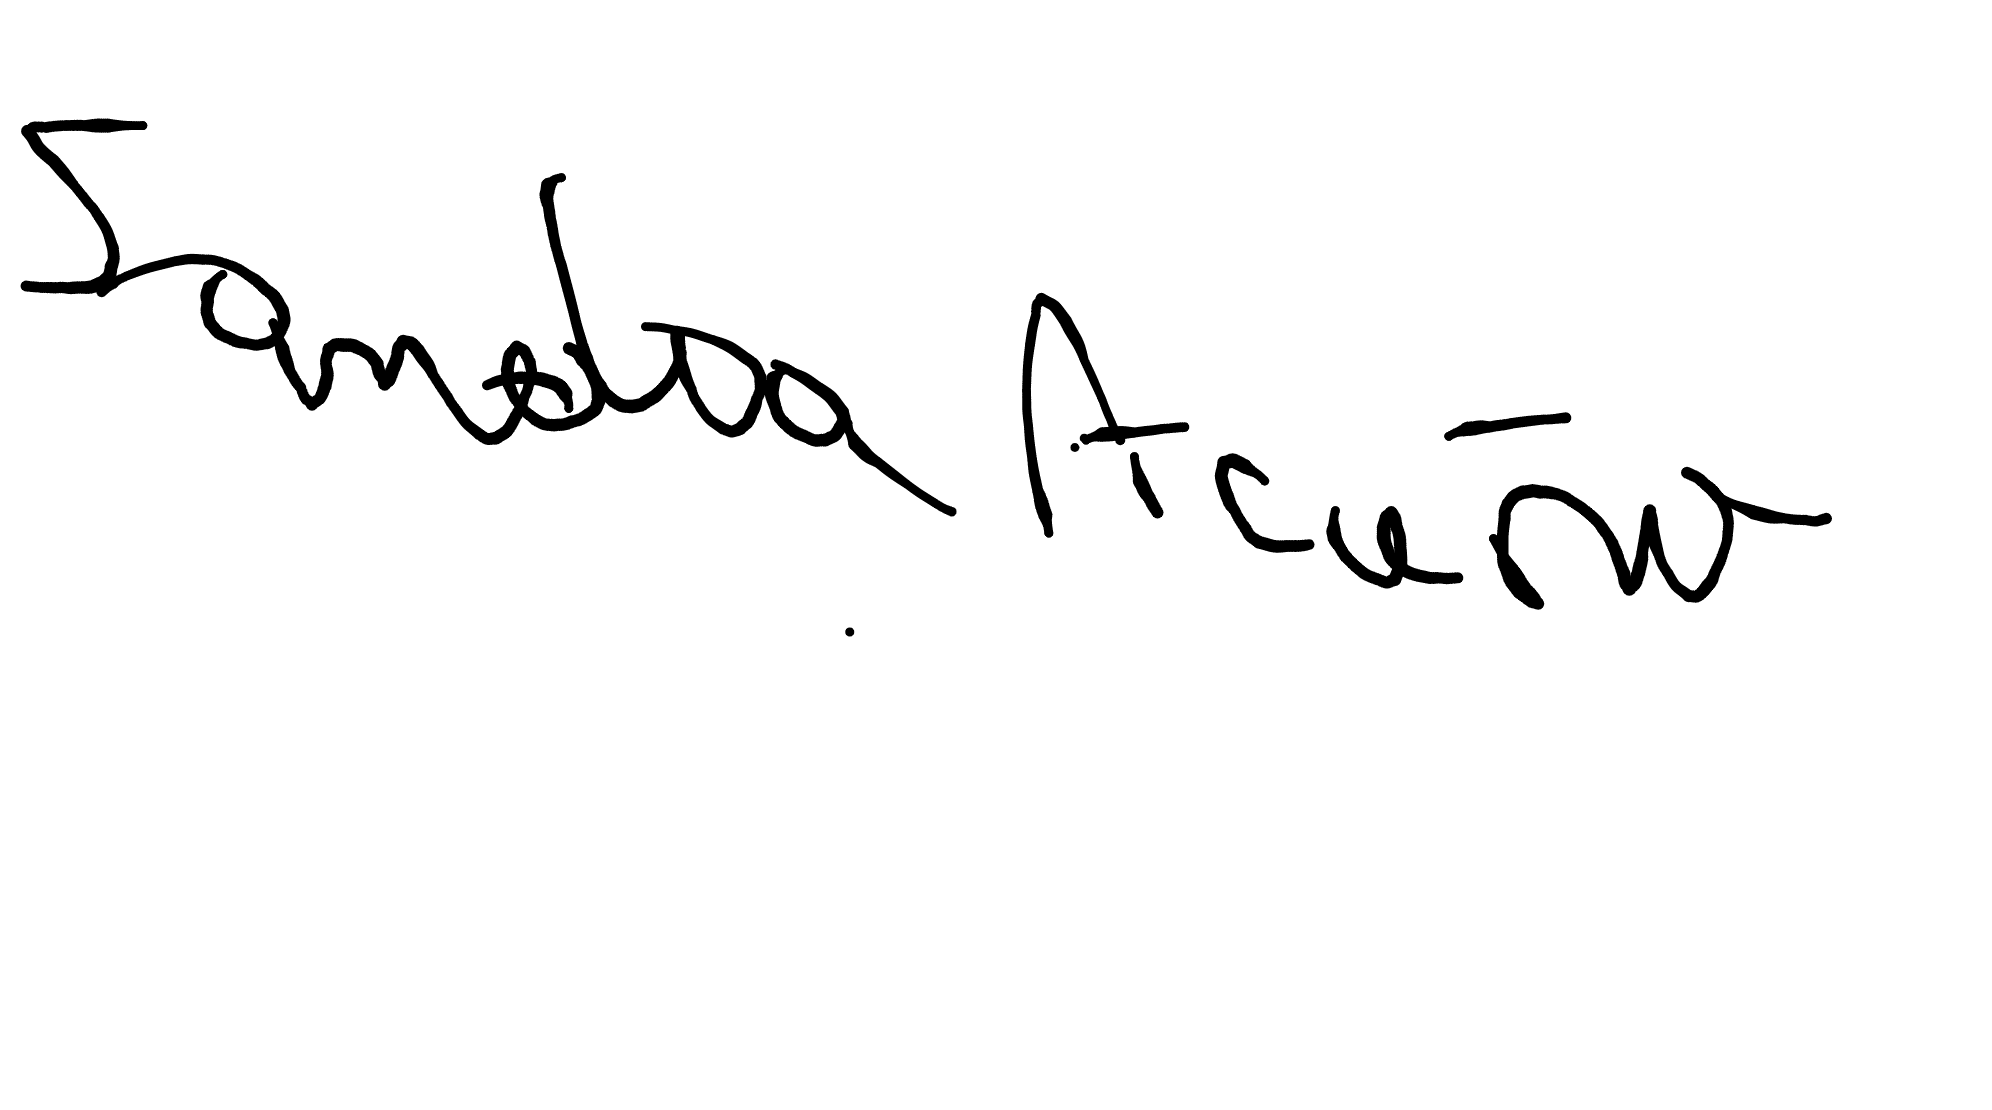 Sandra Acuño